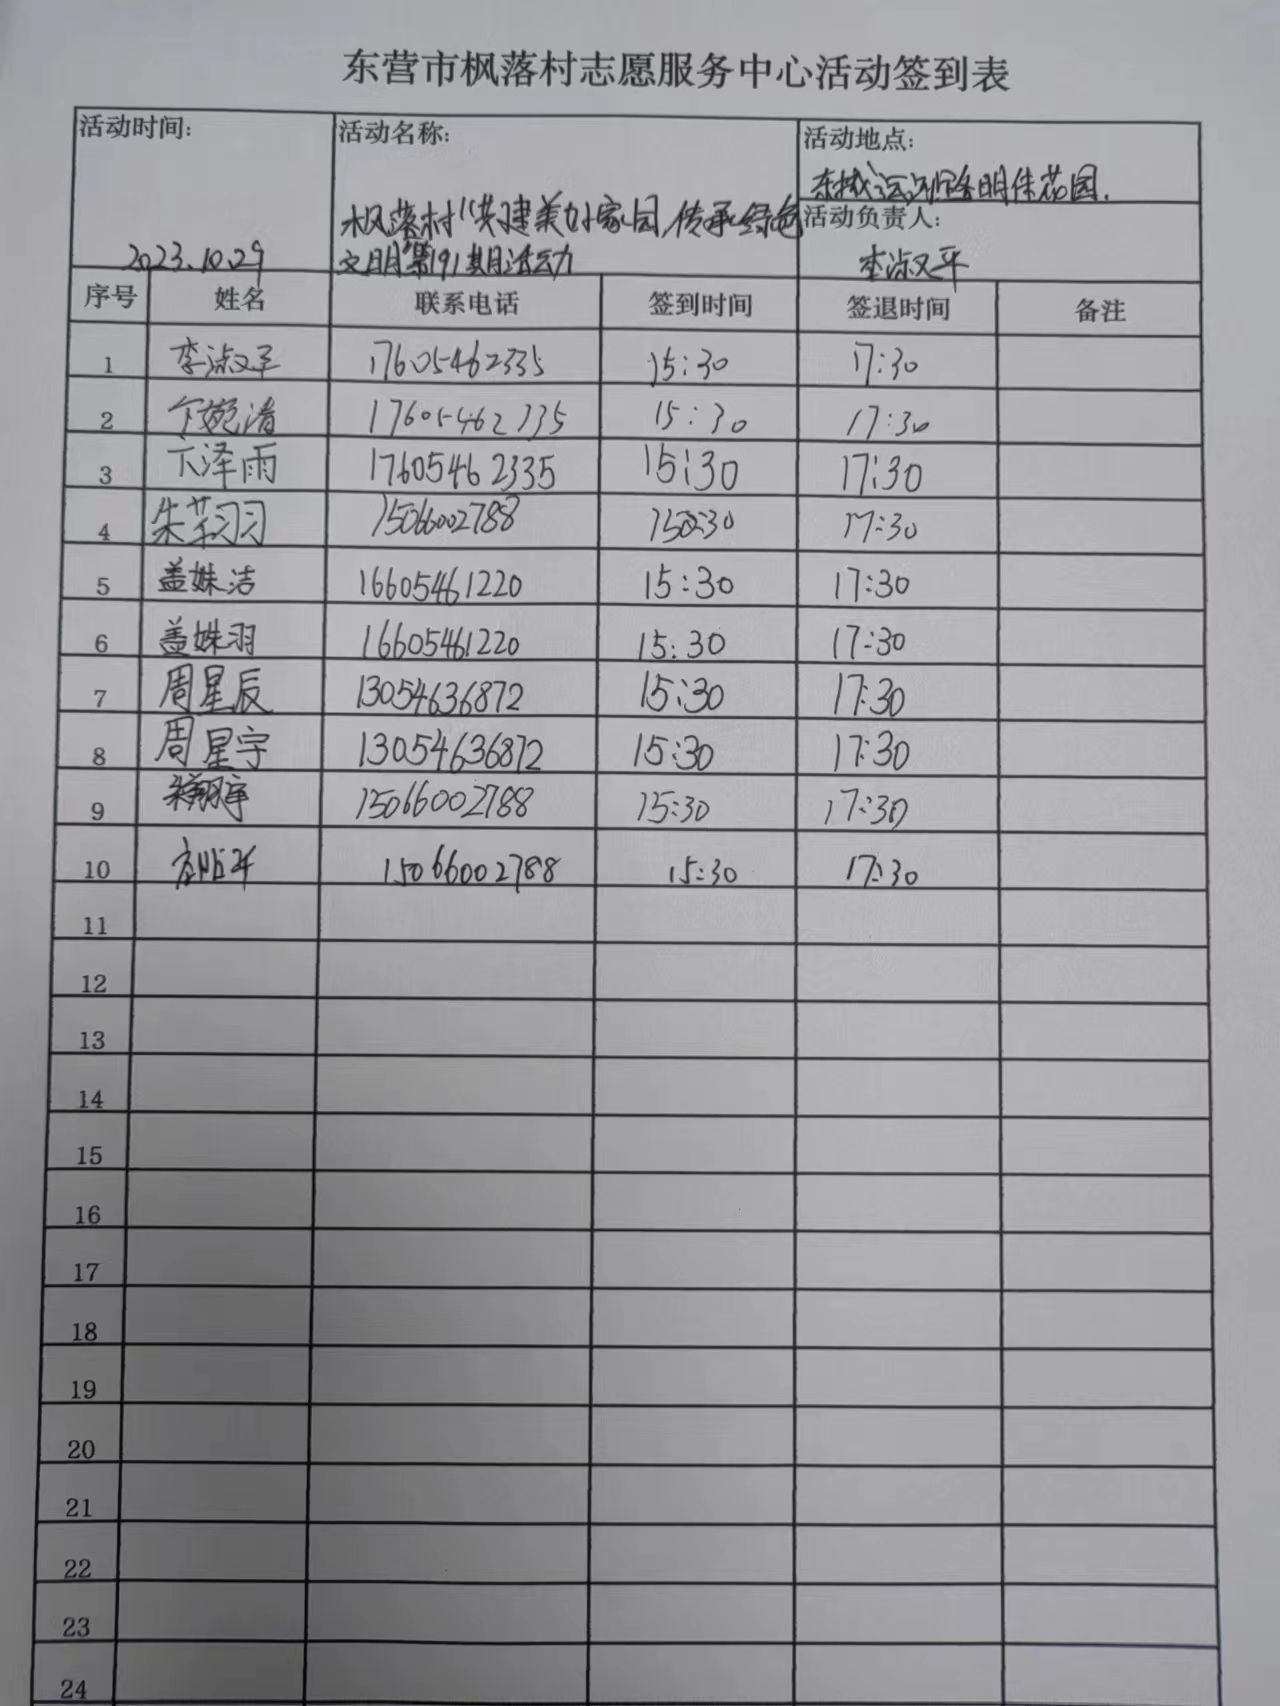 东营市枫落村志愿服务中心活动签到表
活动时间: 活动名称: 活动地点:
东城 明佳花园.
枫落村“共建美好家园,传承绿色 活动负责人:
2023.10.29 文明”第191期活动 李淑平
序号 姓名 联系电话 签到时间 签退时间 备注
1 李淑平 17605462335 15:30 17:30
2 卞婉清 17605462335 15:30 17:30
3 卞泽雨 17605462335 15:30 17:30
4 朱芊羽 15066002788 15:30 17:30
5 盖姝洁 16605461220 15:30 17:30
6 盖姝羽 16605461220 15:30 17:30
7 周星辰 13054636872 15:30 17:30
8 周星宇 13054636872 15:30 17:30
9 15066002788 15:30 17:30
10 15066002788 15:30 17:30
11
12
13
14
15
16
17
18
19
20
21
22
23
24